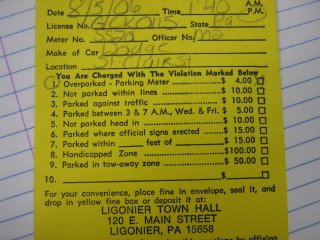 Date 8/5/06 Time 1:40 A.M. P.M.
License No. State Pa
Meter No. 5520 Officer No. M2
Make of Car Dodge
Location St Clair St
You Are Charged With The Violation Marked Below
1. Overparked - Parking Meter $ 4.00
2. Not parked within lines $ 10.00
3. Parked against traffic $ 10.00
4. Parked between 3 & 7 A.M., Wed. & Fri. $ 5.00
5. Not parked head in $ 10.00
6. Parked where official signs erected $ 15.00
7. Parked within feet of $ 15.00
8. Handicapped Zone $100.00
9. Parked in tow-away zone $ 50.00
10. $
For your convenience, place fine in envelope, seal it, and
drop in yellow fine box or deposit it at:
LIGONIER TOWN HALL
120 E. MAIN STREET
LIGONIER, PA 15658
by affixing